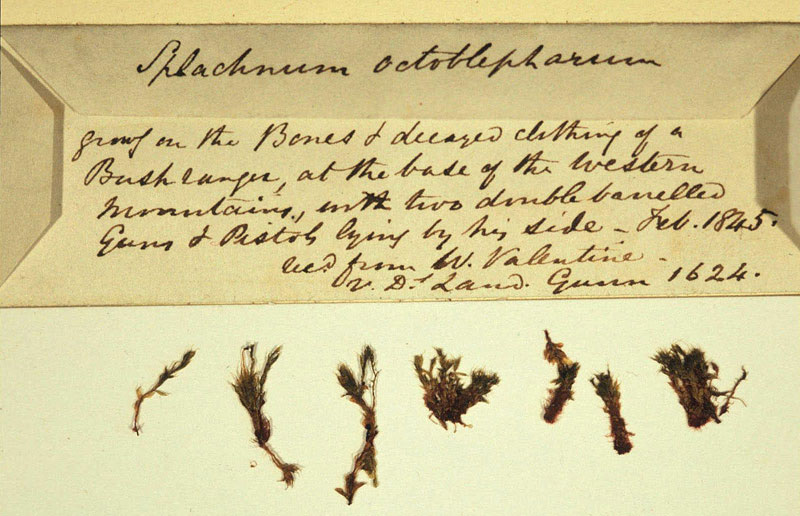 Splachnum octoblepharum
grows on the Bones & decayed clothing of a
Bushranger, at the base of the Western
Mountains, with two double banelled
Guns & Pistols lying by his side - Feb. 1845.
rec.d from W. Valentine -
V. D.s Land. Gunn 1624.